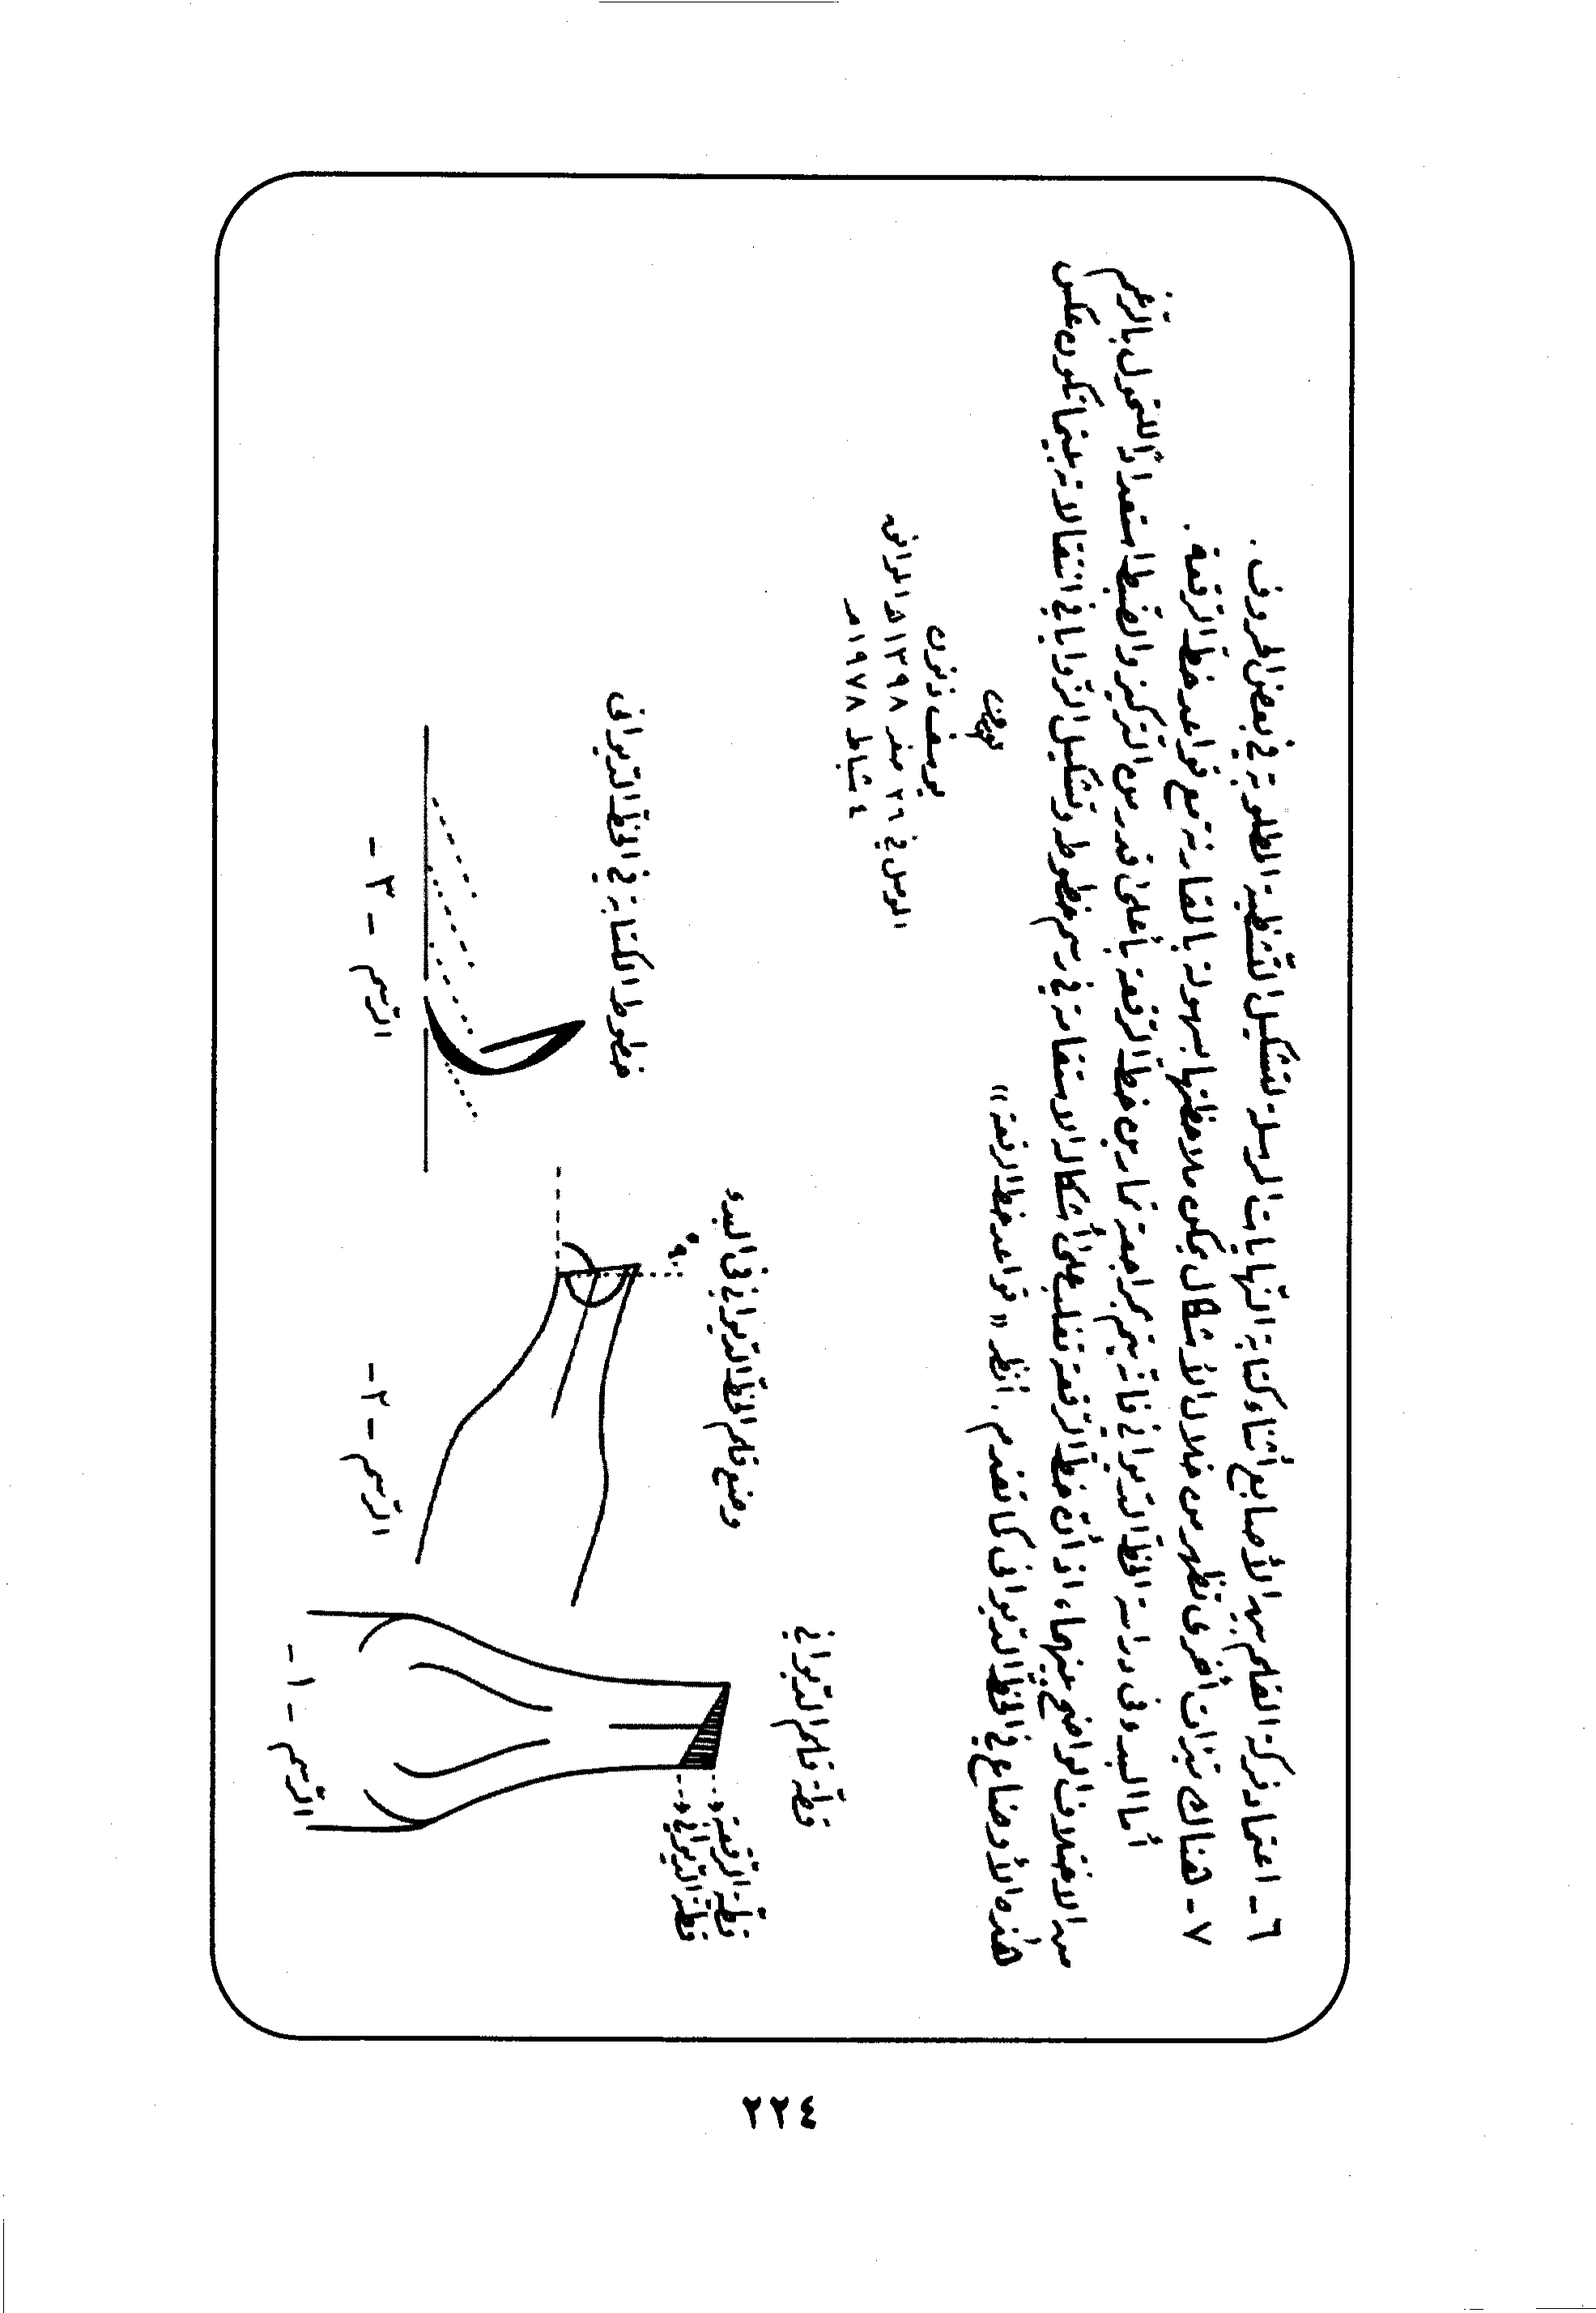 ٦ - اعتماد حركة القلم بيد الأصابع أثناء كتابة النهايات المرسلة لتشكيل التشظية المطلوبة في بعض الحروف .
٧ - هناك ميزات أخرى تظهر من خلال الأشكال يمكن ملاحظتها بسهولة بالمقارنة مع قواعد خط الرقعة .
أما البدء في دراسة الخط الديواني فانه يتم بمراجعة تمارين خط الرقعة بأعلى قدر من التركيز والضبط استعداداً للتحول بالرغم
من الاختلاف الواضح بينهما، اذ أن خط الرقعة تغلب على أشكاله الاستقامة في رسم خطوطه وتشكيل الزوايا في انتقالاته بينما تكون عكس
هذه الأوضاع في الخط الديواني كما تقدم . انظر « قواعد خط الرقعة »
يوسف ذنون
الموصل في ٢٦ صفر ١٣٩٨ هـ الموافق
٤ شباط ١٩٧٨ م
قطة قلم الديواني
قطة الرقعة
قطة الديواني
الرسم - ١ -
وضع قلم الخط الديواني في البدء
٩٠°
الرسم - ٢ -
خطوط الكتابة في الخط الديواني
الرسم - ٣ -
٢٢٤